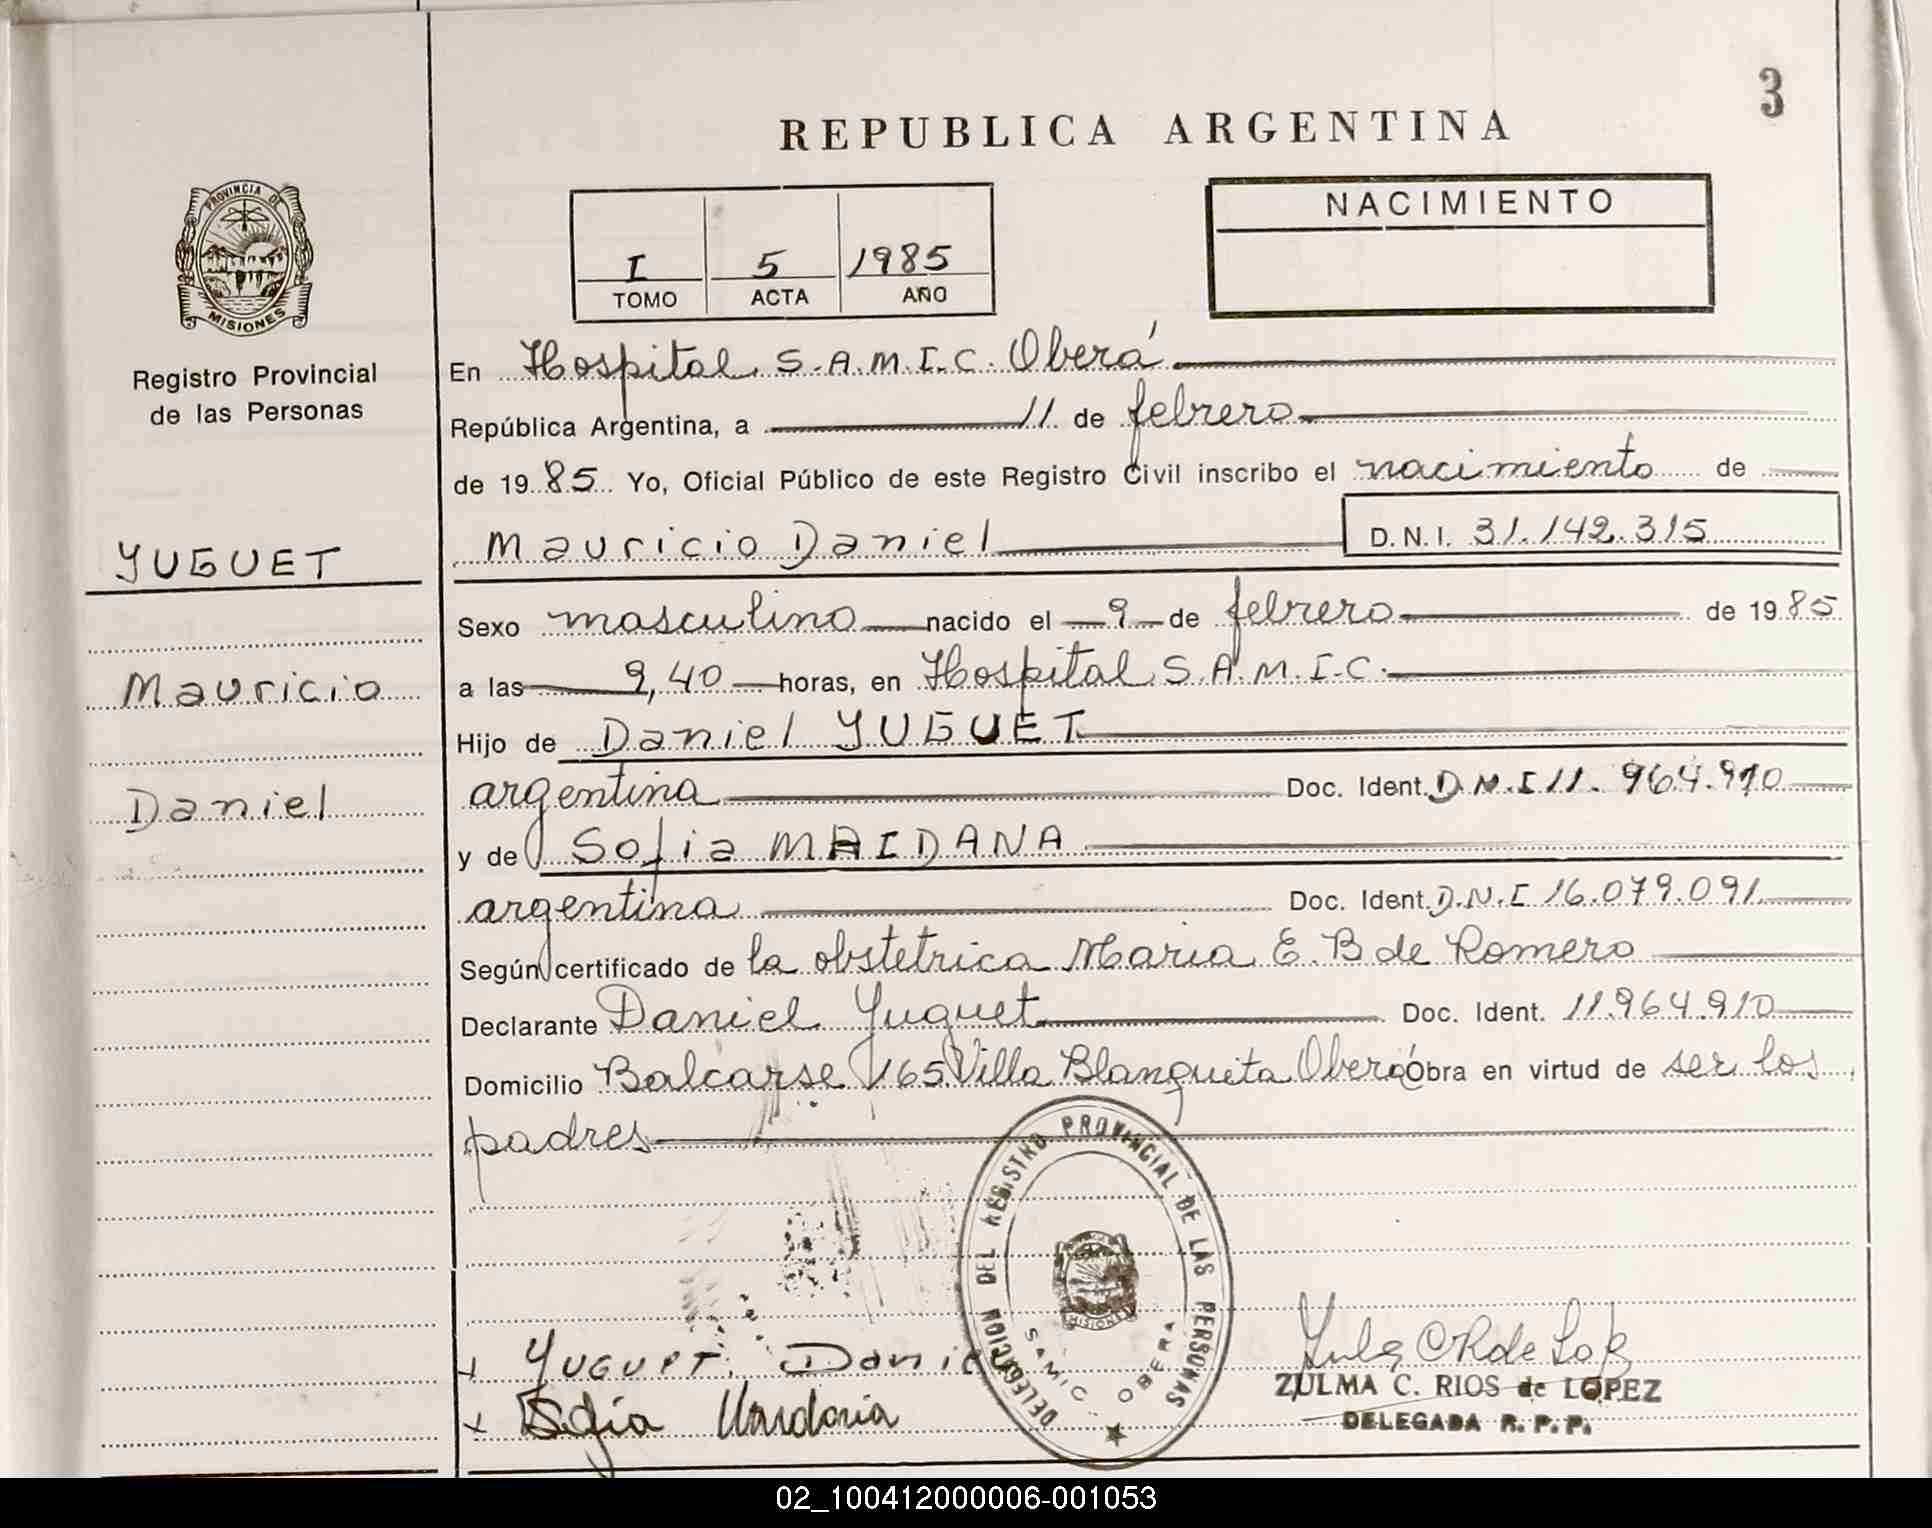 3
REPUBLICA ARGENTINA
PROVINCIA DE
MISIONES
Registro Provincial
de las Personas
I 5 1985
TOMO ACTA AÑO
NACIMIENTO
En Hospital S.A.M.I.C. Oberá
República Argentina, a 11 de febrero
de 1985 Yo, Oficial Público de este Registro Civil inscribo el nacimiento de
Mauricio Daniel D.N.I. 31.142.315
YUGUET
Mauricio
Daniel
Sexo masculino nacido el 9 de febrero de 1985
a las 9,40 horas, en Hospital S.A.M.I.C.
Hijo de Daniel YUGUET
argentina Doc. Ident. D.N.I 11.964.910
y de Sofia MAIDANA
argentina Doc. Ident. D.N.I 16.079.091
Según certificado de la obstetrica Maria E. B de Romero
Declarante Daniel Yuguet Doc. Ident. 11.964.910
Domicilio Balcarse 165 Villa Blanqueta Oberá Obra en virtud de ser los
padres
DELEGACION DEL REGISTRO PROVINCIAL DE LAS PERSONAS
MISIONES
SAMIC OBERA
+ YUGUET Danie
+ Sofia Maidana
ZULMA C. RIOS de LOPEZ
DELEGADA R. P. P.
02_100412000006-001053